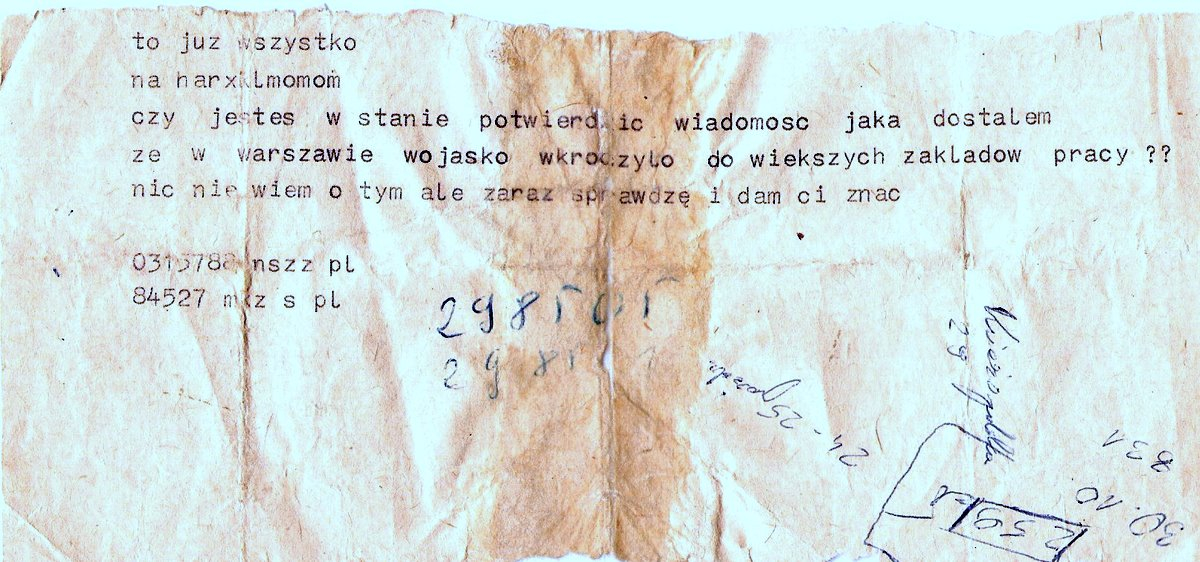 to juz wszystko
na harxklmomom
czy jestes w stanie potwierdzic wiadomosc jaka dostalem
ze w warszawie wojasko wkroczylo do wiekszych zakladow pracy ??
nic nie wiem o tym ale zaraz sprawdzę i dam ci znac
0315788 nszz pl
84527 mkz s pl
298
29 8
29
24 - 25
831
30.10
259